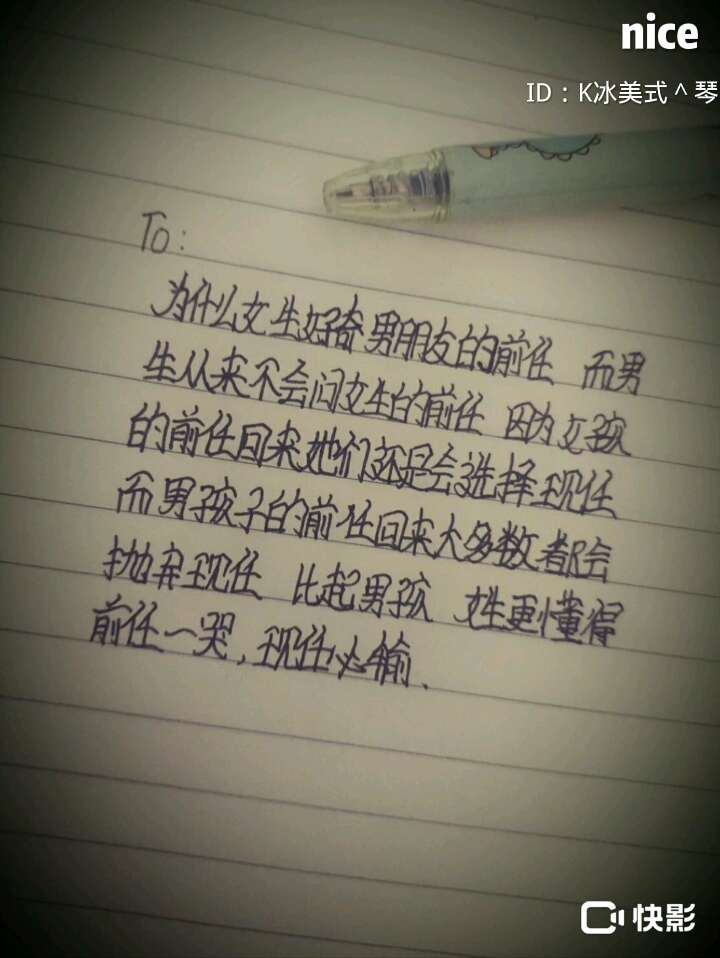 nice
ID：K冰美式^琴
To:
为什么女生好奇男朋友的前任 而男
生从来不会问女生的前任 因为女孩
的前任回来她们还是会选择现任
而男孩子的前任回来大多数都会
抛弃现任 比起男孩 女生更懂得
前任一哭,现任必输.
快影